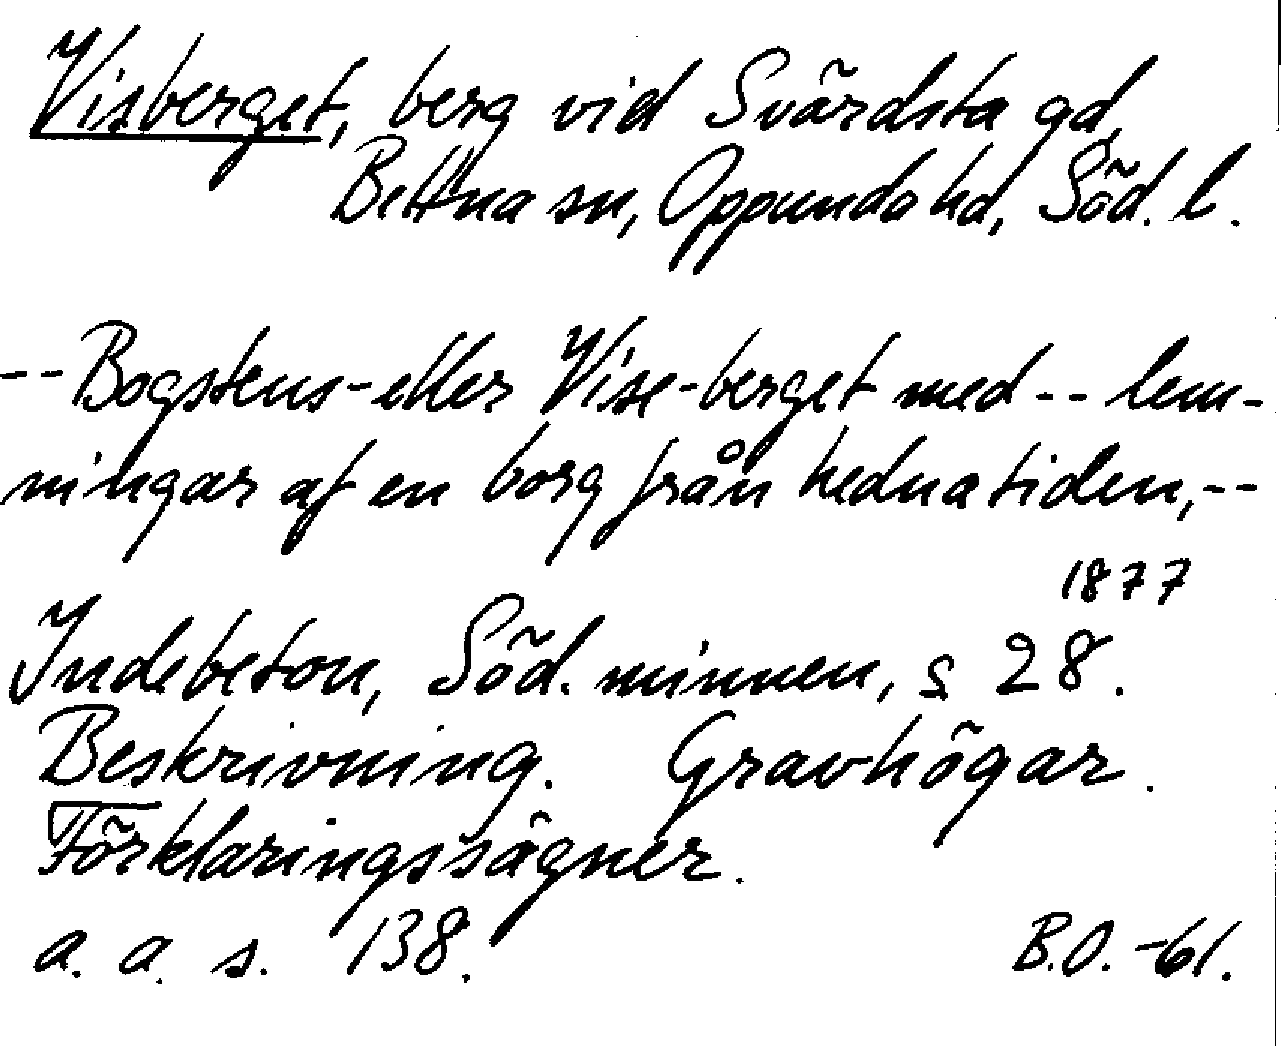 Visberget, berg vid Svärdsta gd,
Bettna sn, Oppunda hd, Söd. l.
--Bogstens- eller Vise-berget med -- lem-
ningar af en borg från hednatiden,--
1877
Indebetou, Söd. minnen, s 28.
Beskrivning. Gravhögar.
Förklaringssägner.
a. a. s. 138.
B.O. -61.